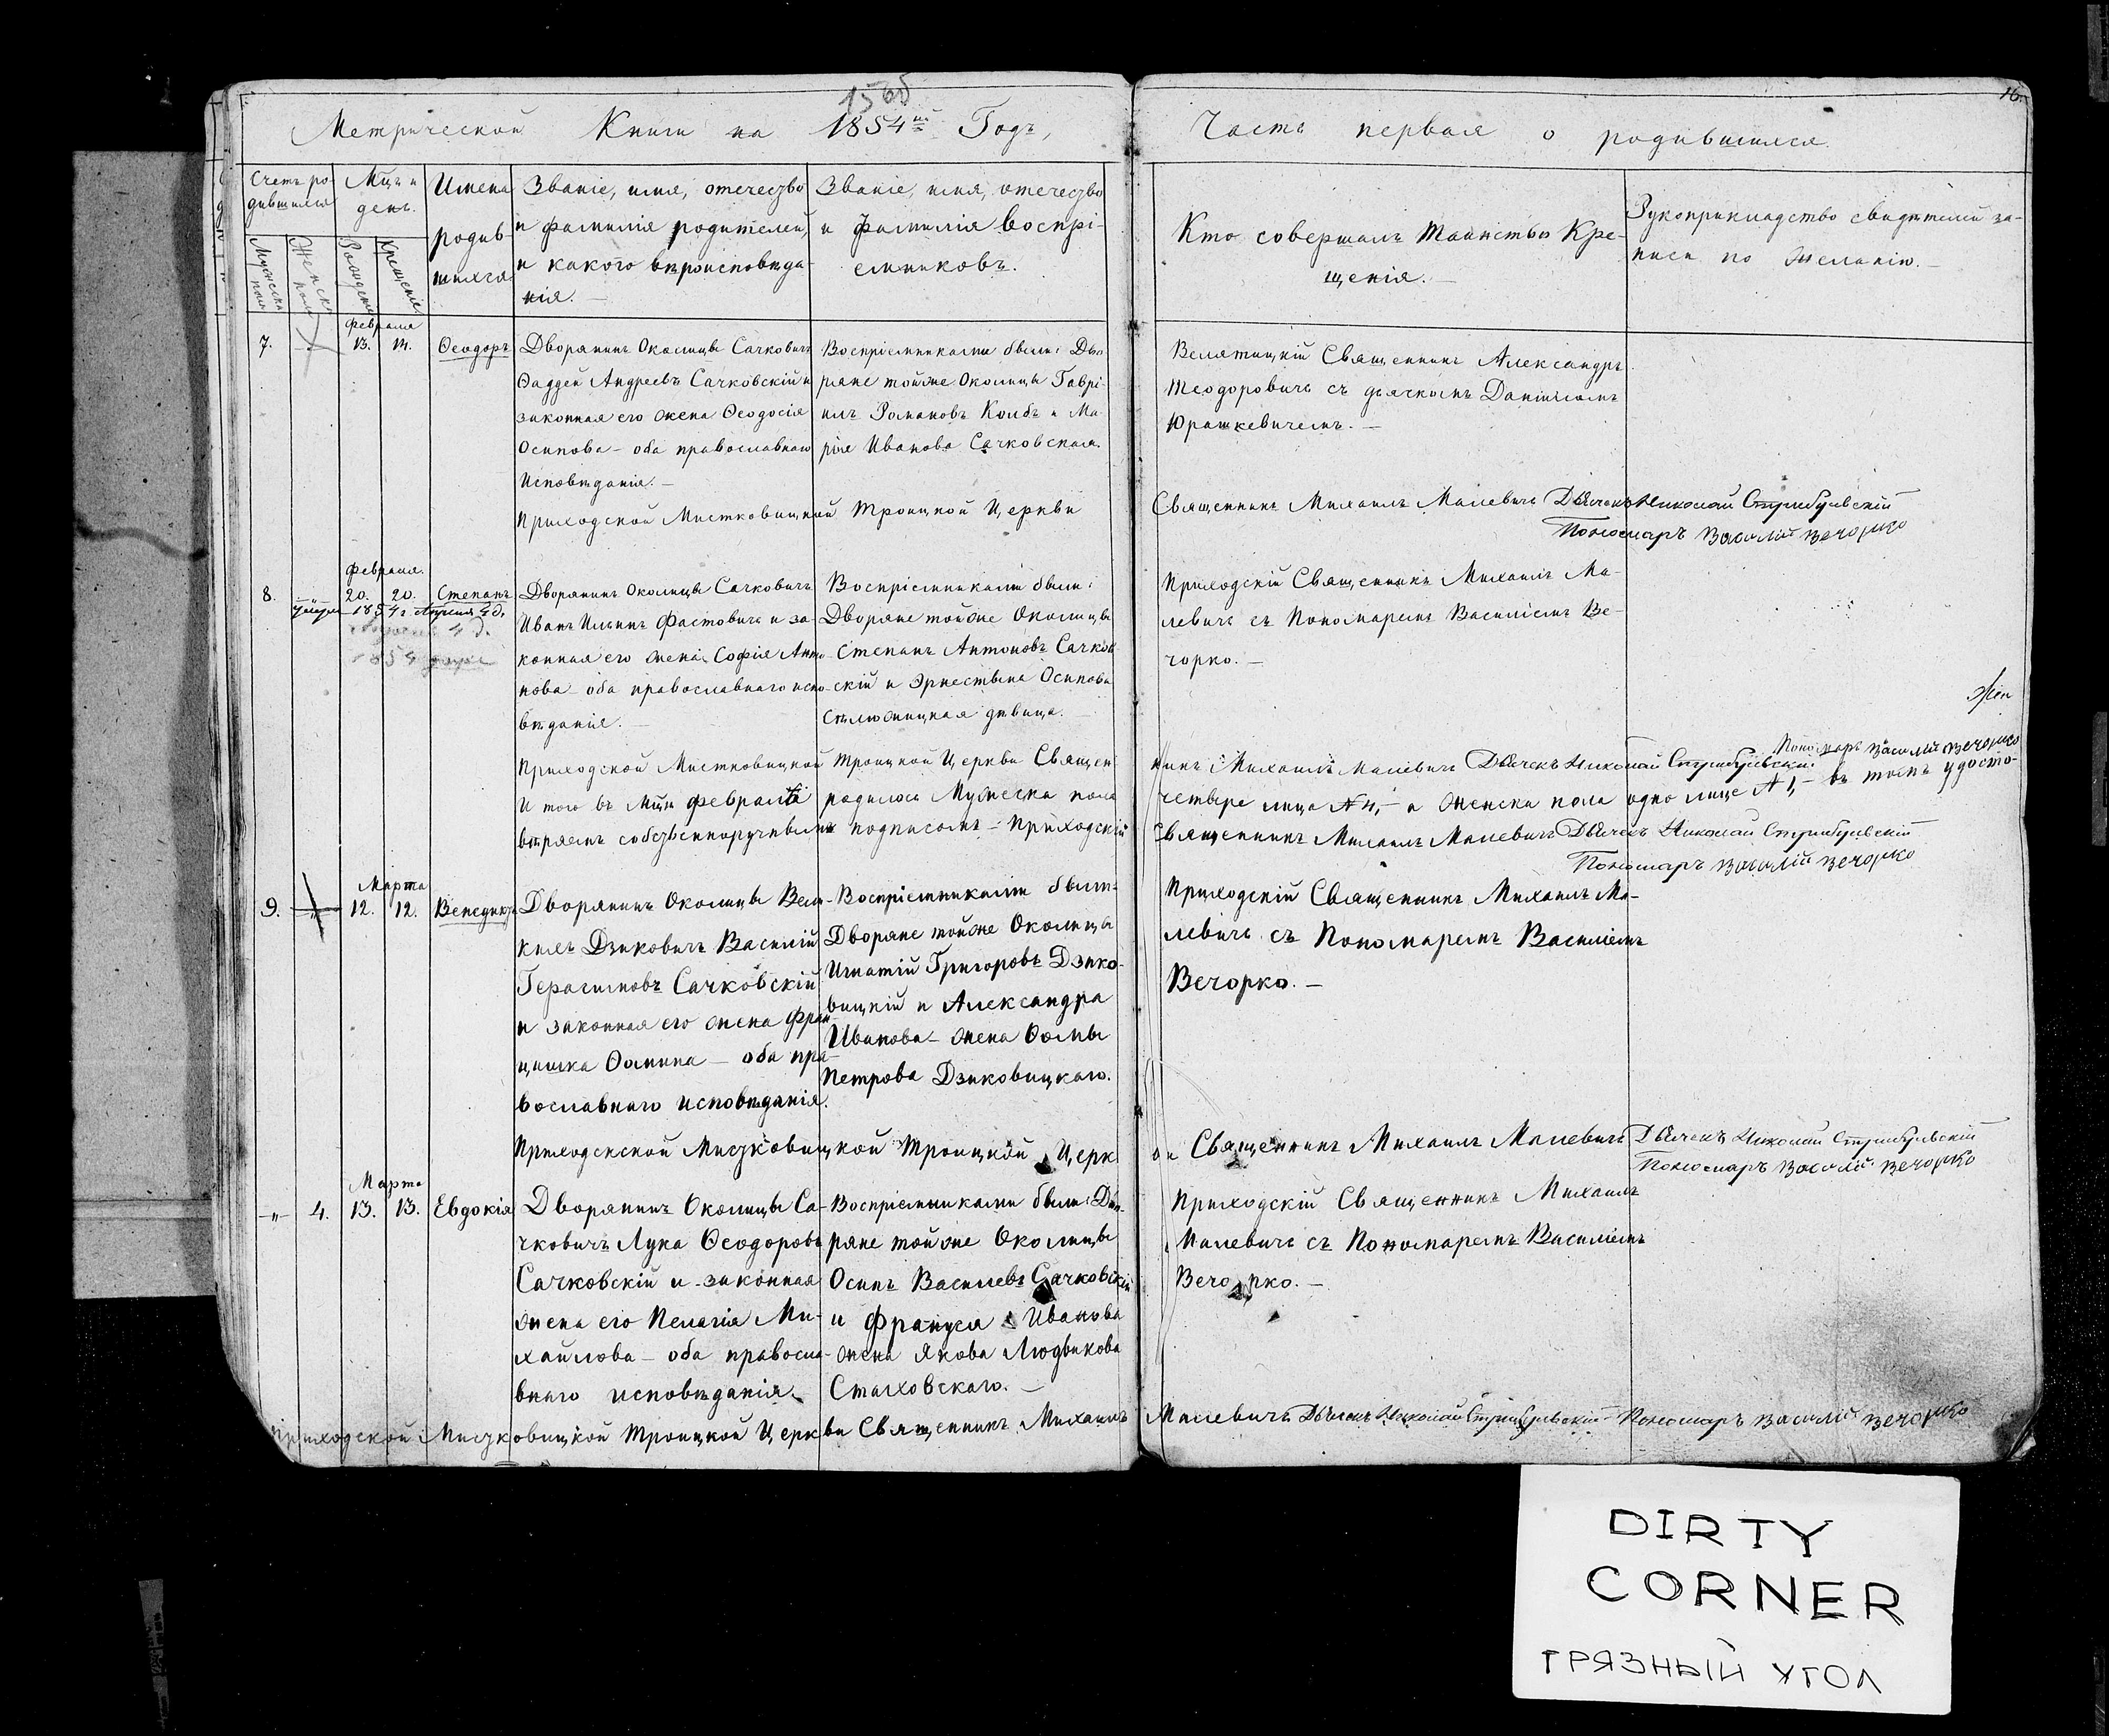 156об
16.
Метрической Книги на 1854й Годъ,
Часть первая о родившихся.
Счетъ ро-
дившихся
Мужеска
пола
Женска
пола
Мцъ и
день.
Рожденія
Крещенія
Имена
родив-
шихся
Званіе, имя, отечество
и фамилія родителей,
и какого вѣроисповѣда-
нія.
Званіе, имя, отечество
и фамилія воспрі-
емниковъ.
Кто совершалъ Таинство Кре-
щенія.
Рукоприкладство свидѣтелей за-
писи по желанію.
Февраля
7.
13. 14.
Ѳеодоръ
Дворянинъ Околицы Сачковичъ
Ѳаддей Андреевъ Сачковскій и
законная его жена Ѳеодосія
Осипова - оба православнаго
Исповѣданія.
Воспріемниками были: Дво
ряне тойже Околицы Гаврі-
илъ Романовъ Колбъ и Ма-
рія Иванова Сачковская.
Велятицкій Священникъ Александръ
Теодоровичъ съ дьячкомъ Даніиломъ
Юрашкевичемъ. -
Приходской Мистковицкой Троицкой Церкви
Священникъ Михаилъ Малевичъ Дьячекъ Николай Стрибульскій
Пономаръ Василій Вечорко
Февраля.
8.
20. 20.
Степанъ
умеръ 1854г Апреля 4 д.
Дворянинъ Околицы Сачковичъ
Иванъ Ильинъ Фастовичъ и за
конная его жена Софія Анто-
нова - оба православнаго испо-
вѣданія.
Воспріемниками были:
Дворяне тойже Околицы
Степанъ Антоновъ Сачков
скій и Эрнестына Осипова
Сѣлюжицкая дѣвица.
Приходскій Священникъ Михаилъ Ма-
левичъ съ Пономаремъ Василіемъ Ве-
чорко. -
Приходской Мистковицкой Троицкой Церкви Священ
никъ Михаилъ Малевичъ Дьячекъ Николай Стрибульскій
Пономаръ Василій Вечорко
И того въ Мцѣ Февралѣ родилось Мужеска пола
четверо лица № 4, - а женска пола одно лице № 1, - въ томъ удосто-
вѣряемъ собственноручнымъ подписомъ - Приходскій
Священникъ Михаилъ Малевичъ Дьячекъ Николай Стрибульскій
Пономаръ Василій Вечорко
Марта
9.
12. 12.
Венедиктъ
Дворянинъ Околицы Вели-
кихъ Дзиковичъ Василій
Герасимовъ Сачковскій
и законная его жена Фран
цишка Ѳомина - оба пра-
вославнаго исповѣданія.
Воспріемниками были:
Дворяне тойже Околицы
Игнатій Григоровъ Дзико-
вицкій и Александра
Иванова - жена Ѳомы
Петрова Дзиковицкаго.
Приходскій Священникъ Михаилъ Ма-
левичъ съ Пономаремъ Василіемъ
Вечорко. -
Приходскской Мистковицкой Троицкой Церк
ви Священникъ Михаилъ Малевичъ Дьячекъ Николай Стрибульскій
Пономаръ Василій Вечорко
Марта
-"- 4.
13. 13.
Евдокія
Дворянинъ Околицы Са-
чковичъ Лука Ѳеодоровъ
Сачковскій и законная
жена его Пелагія Ми-
хайлова - оба правосла-
внаго исповѣданія.
Воспріемниками были: Дво-
ряне тойже Околицы
Осипъ Василевъ Сачковскій
и Француся Иванова
жена Якова Людвикова
Стаховскаго. -
Приходскій Священникъ Михаилъ
Малевичъ съ Пономаремъ Василіемъ
Вечорко. -
Приходской Мистковицкой Троицкой Церкви Священникъ Михаилъ
Малевичъ Дьячекъ Николай Стрибульскій Пономаръ Василій Вечорко
DIRTY
CORNER
ГРЯЗНЫЙ УГОЛ